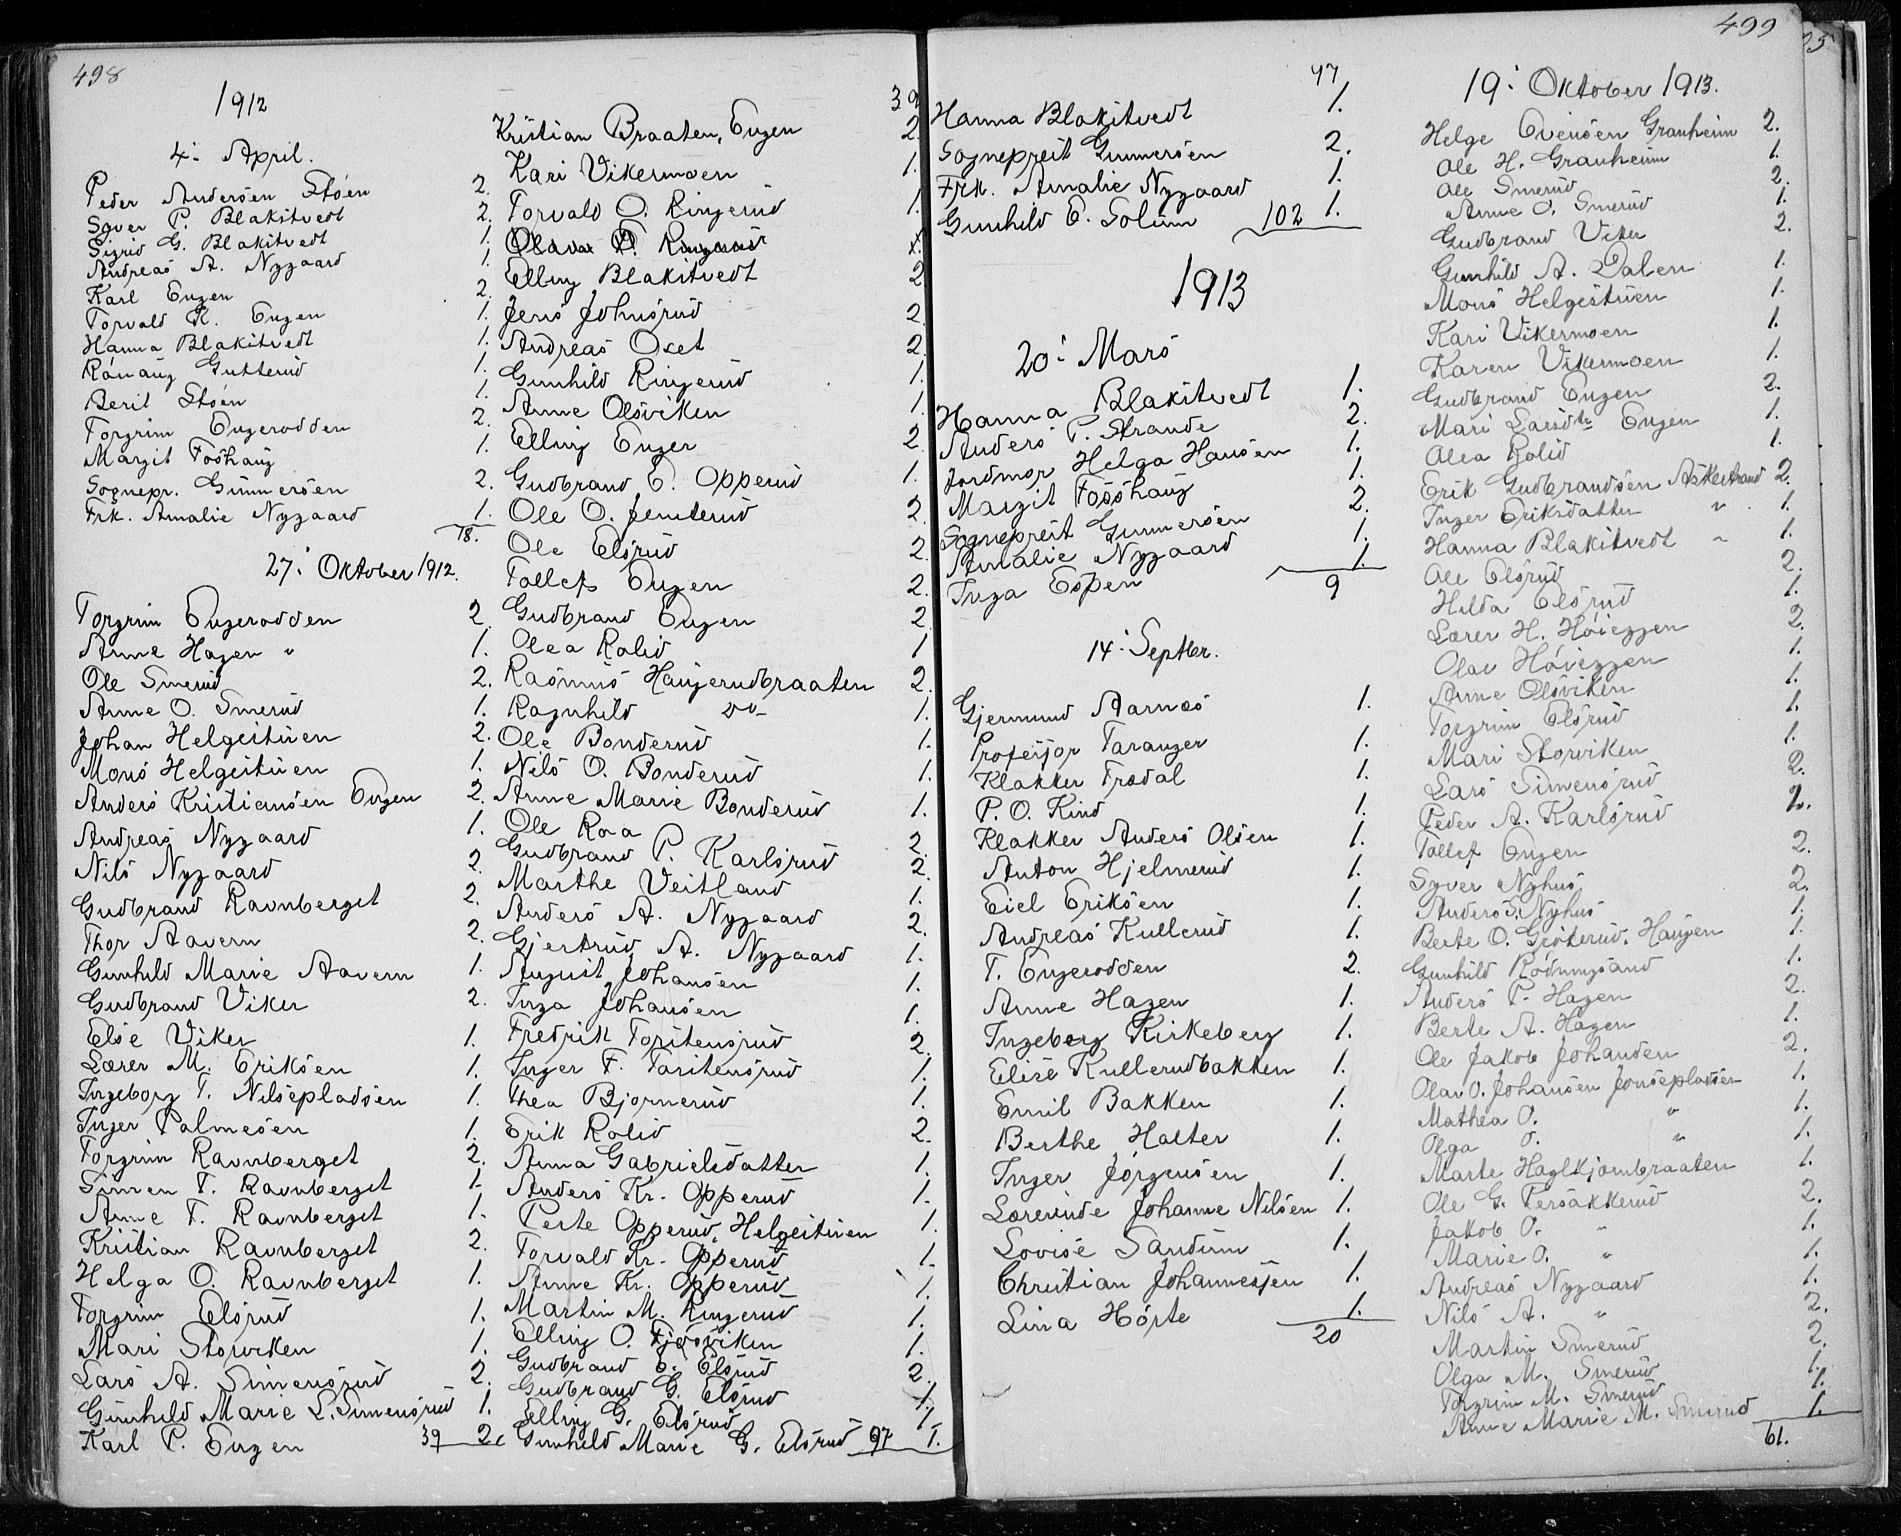 498
1912
4. April.
Peder Andersen Støen 2.
Syver P. Blakstvedt 2.
Sigrid G. Blakstvedt 1.
Andreas A. Nygaard 1.
Karl Engen 2.
Torvald K. Engen 1.
Hanna Blakstvedt 1.
Rønnaug Gutterud 1.
Berit Støen 1.
Torgrim Engerodden 2.
Margit Fosshaug 1.
Sognepr. Gunnersen 2.
Frk. Amalie Nygaard 1.
18.
27. Oktober 1912.
Torgrim Engerodden 2
Anne Hagen " 1.
Ole Smerud 2.
Anne O. Smerud 1.
Johan Helgestuen 2.
Mons Helgestuen 1.
Anders Kristiansen Engen 2.
Andreas Nygaard 1.
Nils Nygaard 2.
Gudbrand Ravnberget 2.
Thor Aavern 2.
Gunhild Marie Aavern 1.
Gudbrand Viker 2.
Else Viker 1.
Lærer M. Eriksen 1.
Ingeborg T. Nilsepladsen 1.
Inger Palmesen 1.
Torgrim Ravnberget 2.
Simen T. Ravnberget 1.
Anne T. Ravnberget 1.
Kristian Ravnberget 2.
Helga O. Ravnberget 1.
Torgrim Elsrud 1.
Mari Storviken 1.
Lars A. Simensrud 2.
Gunhild Marie L. Simensrud 1.
Karl P. Engen 39 2.
39
Kristian Braaten, Engen 2.
Kari Vikermoen 1.
Torvald O. Ringerud 1.
Olava O. Ringerud 1.
Elling Blakstvedt 2
Jens Johnsrud 2.
Andreas Oset 2.
Gunhild Ringerud 1.
Anne Olsviken 1.
Elling Enger 2
Gudbrand E. Opperud 1.
Ole O. Jenterud 2.
Ole Elsrud 2.
Tollef Engen 2.
Gudbrand Engen 2
Olea Rolid 1
Rasmus Haugerudbraaten 2.
Ragnhild do- 1.
Ole Bonderud 1.
Nils O. Bonderud 1.
Anne Marie Bonderud 1.
Ole Roa 2.
Gudbrand P. Karlsrud 2.
Marthe Veitland 1.
Anders A. Nygaard 2.
Gjertrud A. Nygaard 1.
August Johansen 1.
Inga Johansen 1.
Fredrik Torstensrud 2.
Inger F. Torstensrud 1.
Thea Bjørnerud 1.
Erik Rolid 2.
Anna Gabrielsdatter 1.
Anders Kr. Opperud 1.
Perte Opperud, Helgestuen 1.
Torvald Kr. Opperud 1.
Anne Kr. Opperud 1.
Martin M. Ringerud 1.
Elling O. Fjøsviken 1.
Gudbrand E. Elsrud 2.
Gudbrand G. Elsrud 1.
Elling G. Elsrud 1.
Gunhild Marie G. Elsrud 97 1.
499
97
Hanna Blakstvedt 1.
Sogneprest Gunnersen 2.
Frk. Amalie Nygaard 1.
Gunhild E. Solum 102 1.
1913
20. Mars
Hanna Blakstvedt 1.
Anders P. Strande 2.
Jordmor Helga Hansen 1.
Margit Fosshaug 1.
Sogneprest Gunnersen 2.
Amalie Nygaard 1.
Inga Espen 1.
9
14. Septber.
Gjermund Aarnes 1.
Professor Taranger 1.
Klokker Frødal 1.
P. O. Kind 1.
Klokker Anders Olsen 1.
Anton Hjelmerud 1.
Eiel Eriksen 1.
Andreas Kullerud 1.
T. Engerodden 2.
Anne Hagen 1.
Ingeborg Kirkeberg 1.
Elise Kullerudbakken 1.
Emil Bakken 1.
Berthe Halter 1.
Inger Jørgensen 1.
Lærerinde Johanne Nilsen 1.
Lovise Sandum 1.
Christian Johannessen 1.
Lina Hørte 1.
20
19. Oktober 1913.
Helge Evensen Granheim 2.
Ole H. Granheim 1.
Ole Smerud 2.
Anne O. Smerud 1.
Gudbrand Viker 2.
Gunhild A. Dalen 1.
Mons Helgestuen 1.
Kari Vikermoen 1.
Karen Vikermoen 1.
Gudbrand Engen 2.
Mari Larsdtr Engen 1.
Olea Rolid 1.
Erik Gudbrandsen Askestrand 2.
Inger Eriksdatter " 1.
Hanna Blakstvedt " 1.
Ole Elsrud 2.
Hilda Elsrud 1.
Lærer H. Høieggen 2.
Olav Høieggen 1.
Anne Olsviken 1.
Torgrim Elsrud 1.
Mari Storviken 1.
Lars Simensrud 2.
Peder A. Karlsrud 2.
Tollef Engen 2.
Syver Nyhus 2.
Anders S. Nyhus 1.
Berte O. Grøterud, Haugen 1.
Gunhild Rødningsand 1.
Anders P. Hagen 2.
Berte A. Hagen 1.
Ole Jakob Johansen 2.
Olav O. Johansen Jonsepladsen 1.
Mathea O. " 1.
Olga O. " 1.
Marte Haglkjærnbraaten 1.
Ole G. Persakkerud 2.
Jakob O. " 1.
Marie O. " 1.
Andreas Nygaard 1.
Nils A. " 2.
Martin Smerud 2.
Olga M. Smerud 1.
Torgrim M. Smerud 1.
Anne Marie M. Smerud 1.
61.